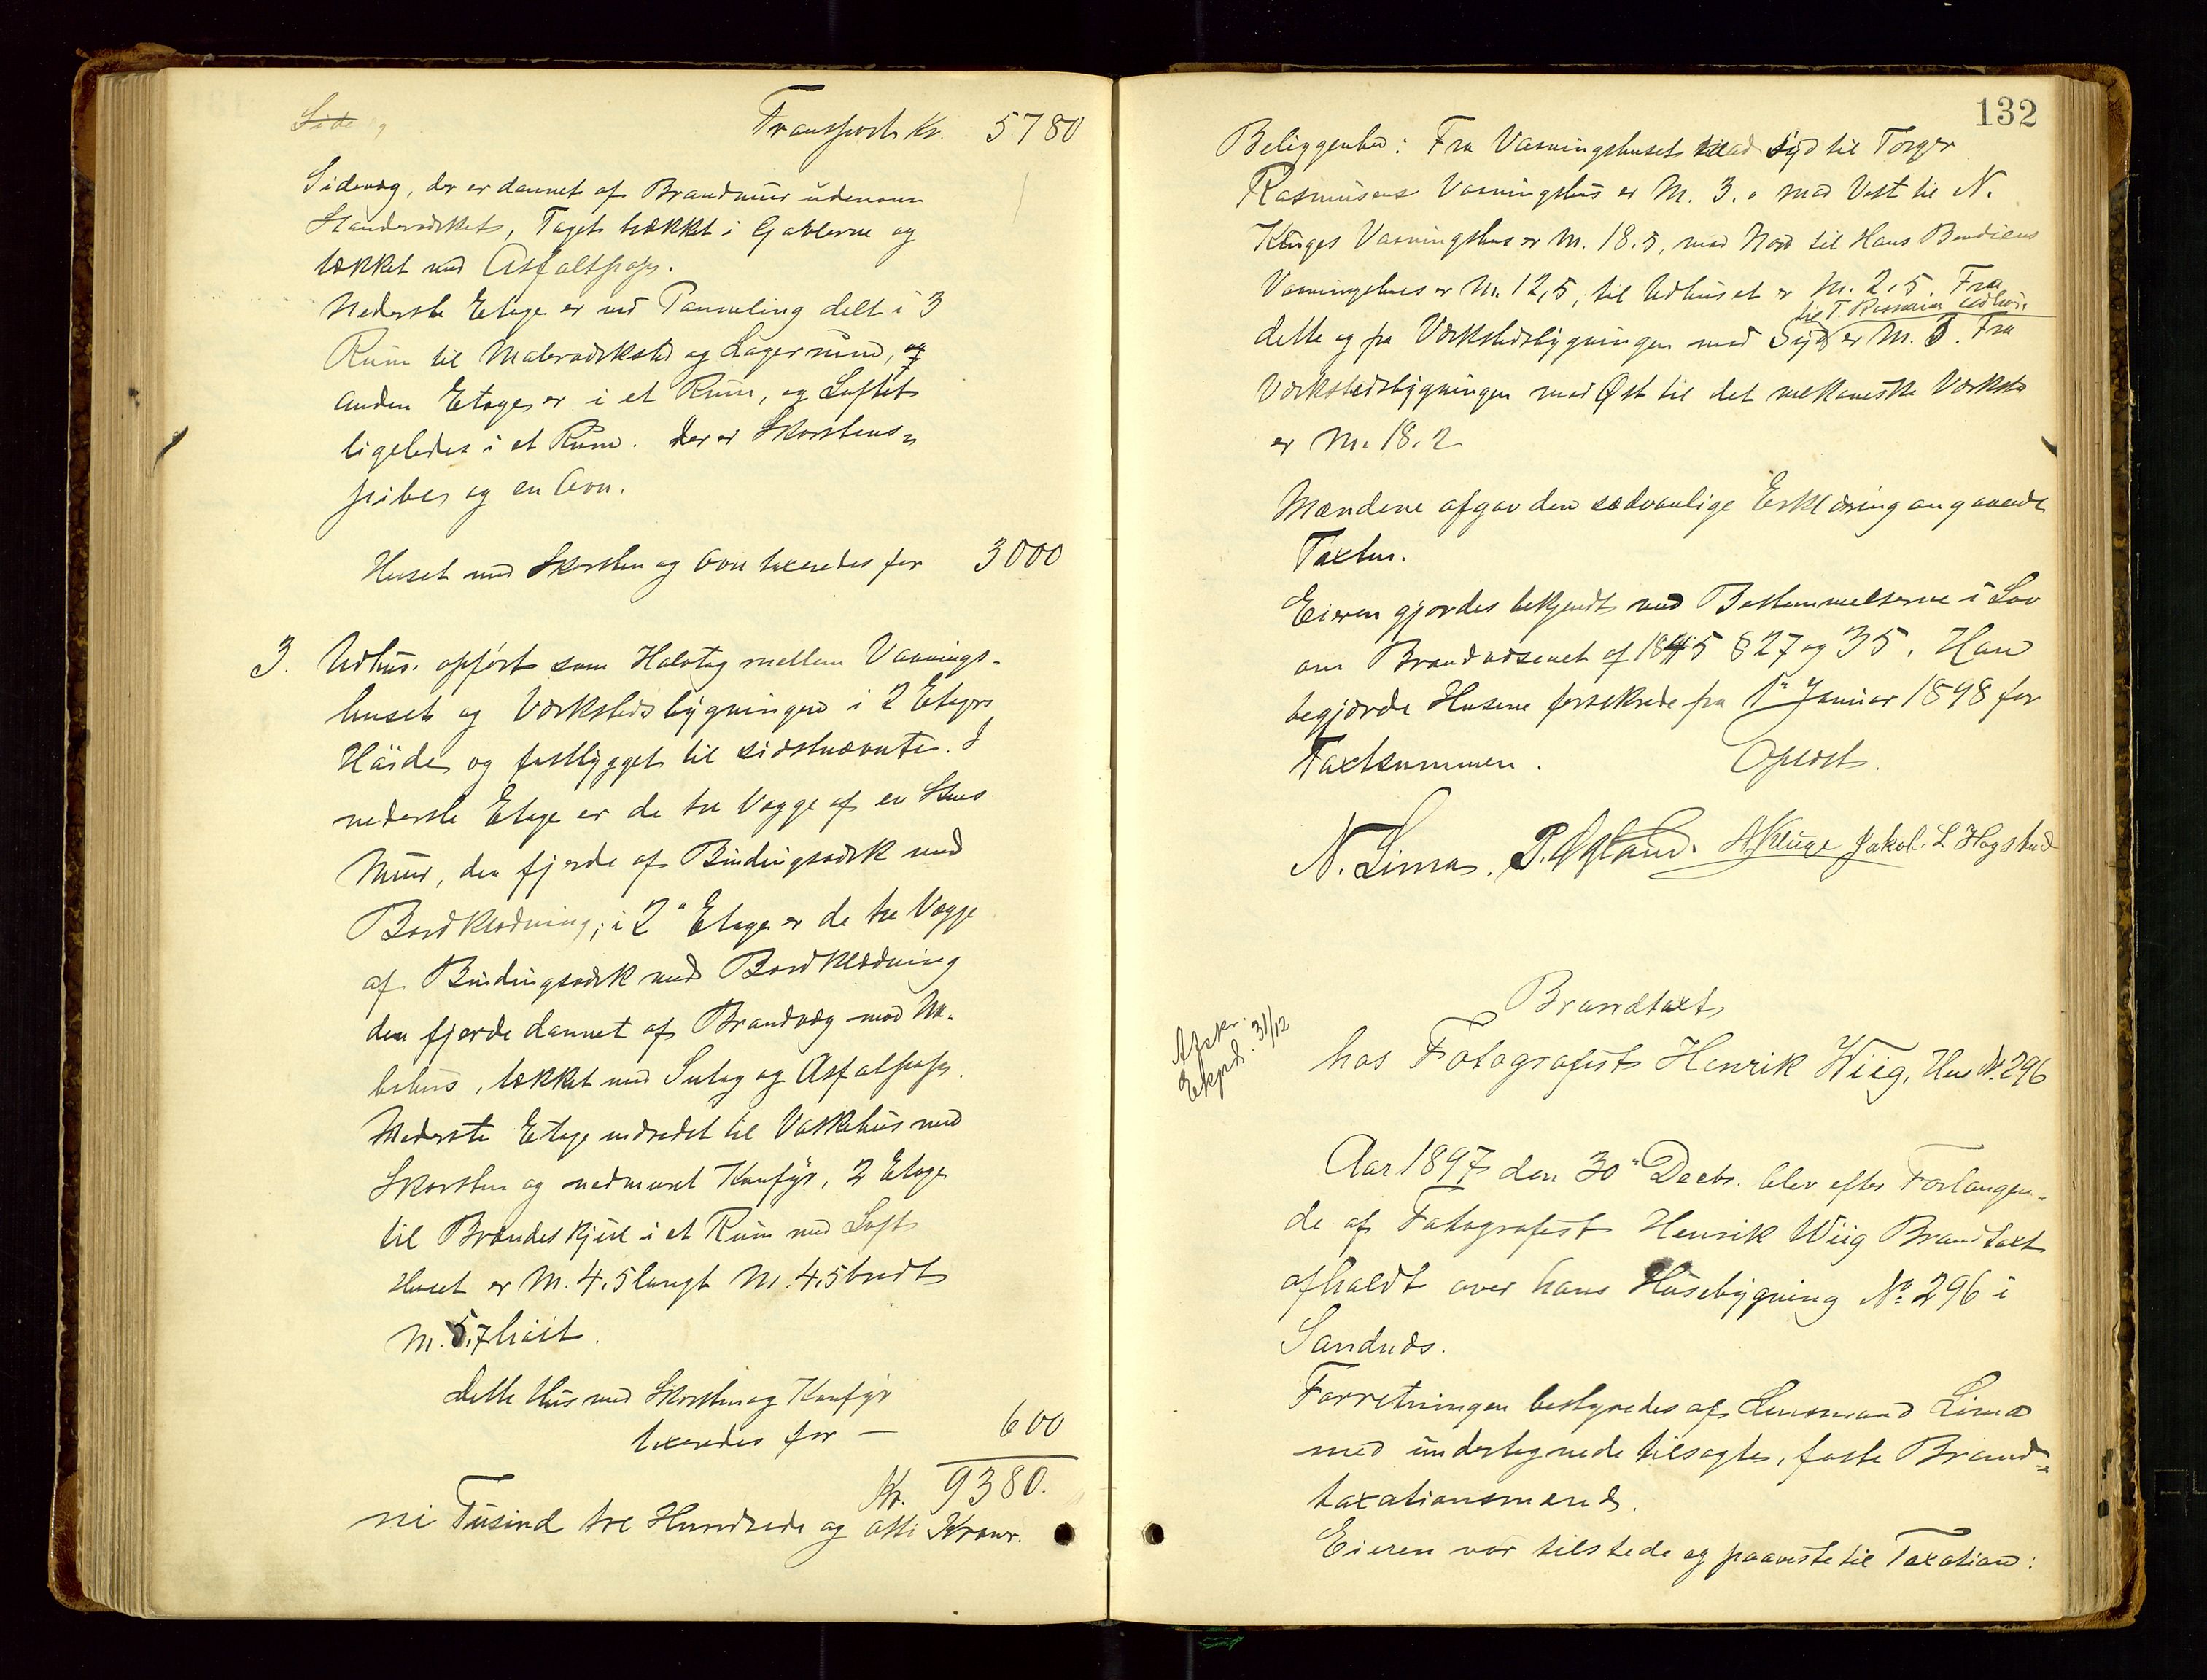 Side
Transport Kr. 5780
Sidevæg, der er dannet af Brandmur udenom
Standerværket, Taget trækket i Gavlerne og
tækket med Asfaltpap.
Nederste Etage er ved Panneling delt i 3
Rum til Malerværksted og Lagerrum, og
anden Etage er i et Rum, og Loftet
ligeledes i et Rum. Der er Skorstens-
pibe og en Ovn.
Huset med Skorsten og Ovn taxeredes for 3000
3. Udhus. opført som Halvtag mellem Vaanings-
huset og Værkstedsbygningen i 2 Etagers
Høide og fastbygget til sidstnævnte. I
nederste Etage er de tre Vægge af en Stens
Mur, den fjerde af Bindingsværk med
Bordklædning; i 2" Etage er de tre Vægge
af Bindingsværk med Bordklædning
den fjerde dannet af Brandvæg mod Na-
bohus, tækket med Sutag og Asfaltpap.
Nederste Etage indredet til Vaskehus med
Skorsten og nedmuret Komfyr, 2 Etage
til Brændeskjul i et Rum med Loft
Huset er M. 4,5 langt M. 4,5 bredt
M. 5,7 høit.
Dette Hus med Skorsten og Komfyr
taxeredes for — 600
Kr. 9380.
ni Tusind tre Hundrede og otti Kroner.
132
Beliggenhed: Fra Vaaningshuset mod Syd til Torger
Rasmusens Vaaningshus er M. 3.0 mod Vest til N.
Kluges Vaaningshus er M. 18.5, mod Nord til Hans Bendicens
Vaaningshus er M. 12,5, til Udhuset er M. 2,5. Fra
til T. Rasmusens Udhus
dette og fra Værkstedsbygningen mod Syd er M. 3. Fra
Værkstedsbygningen mod Øst til det mekaniske Værksted
er M. 18.2
Mændene afgav den sædvanlige Erklæring angaaende
Taxten.
Eieren gjordes bekjendt med Bestemmelserne i Lov
om Brandvæsenet af 1845 § 27 og 35. Han
begjærede Husene forsikrede fra 1" Januar 1898 for
Taxtsummen. Oplæst.
N. Lima. P. Øgland. Kluge Jakob L Hogstad
Brandtaxt
Afskr.
Expd. 31/12
hos Fotografist Henrik Wiig, Hus No. 296
Aar 1897 den 30" Decbr. blev efter Forlangen-
de af Fotografist Henrik Wiig Brandtaxt
afholdt over hans Husebygning No. 296 i
Sandnæs.
Forretningen bestyredes af Lensmand Lima
med undertegnede tilsagte, faste Brand-
taxationsmænd.
Eieren var tilstede og paaviste til Taxation: